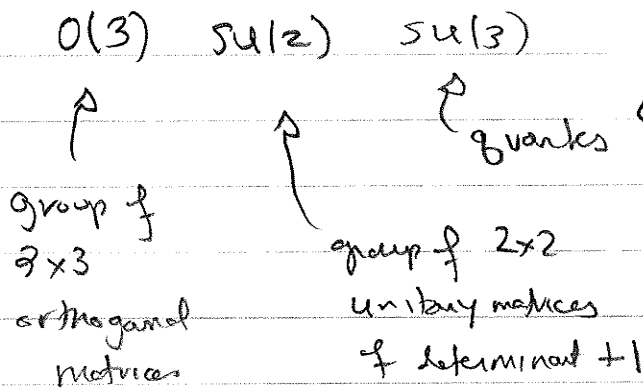 O(3) SU(2) SU(3)
quarks
group of
3x3
orthogonal
matrices
group of 2x2
unitary matrices
of determinant +1